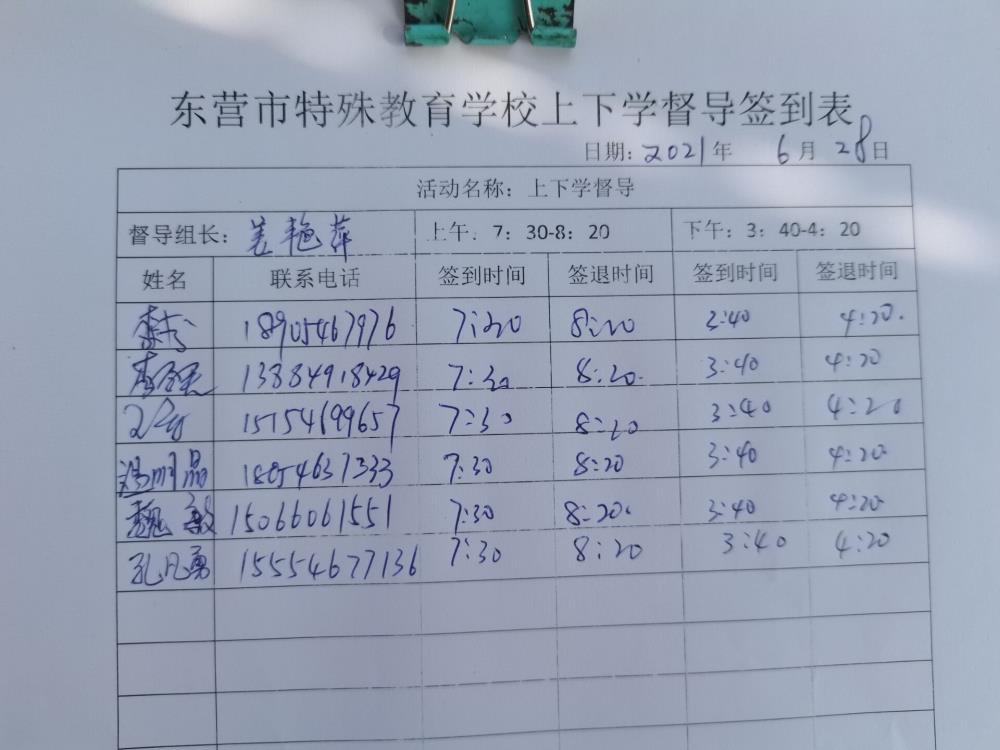 东营市特殊教育学校上下学督导签到表
日期: 2021年 6月 28日
活动名称: 上下学督导
督导组长: 姜艳萍 上午: 7: 30-8: 20 下午: 3: 40-4: 20
姓名 联系电话 签到时间 签退时间 签到时间 签退时间
18905467976 7:30 8:20 3:40 4:20.
13884918429 7:30 8:20. 3:40 4:20
15154699657 7:30 8:20 3:40 4:20
明晶 18054637333 7:30 8:20 3:40 4:20
魏敏 15066061551 7:30 8:20. 3:40 4:20
孔凡勇 15554677136 7:30 8:20 3:40 4:20